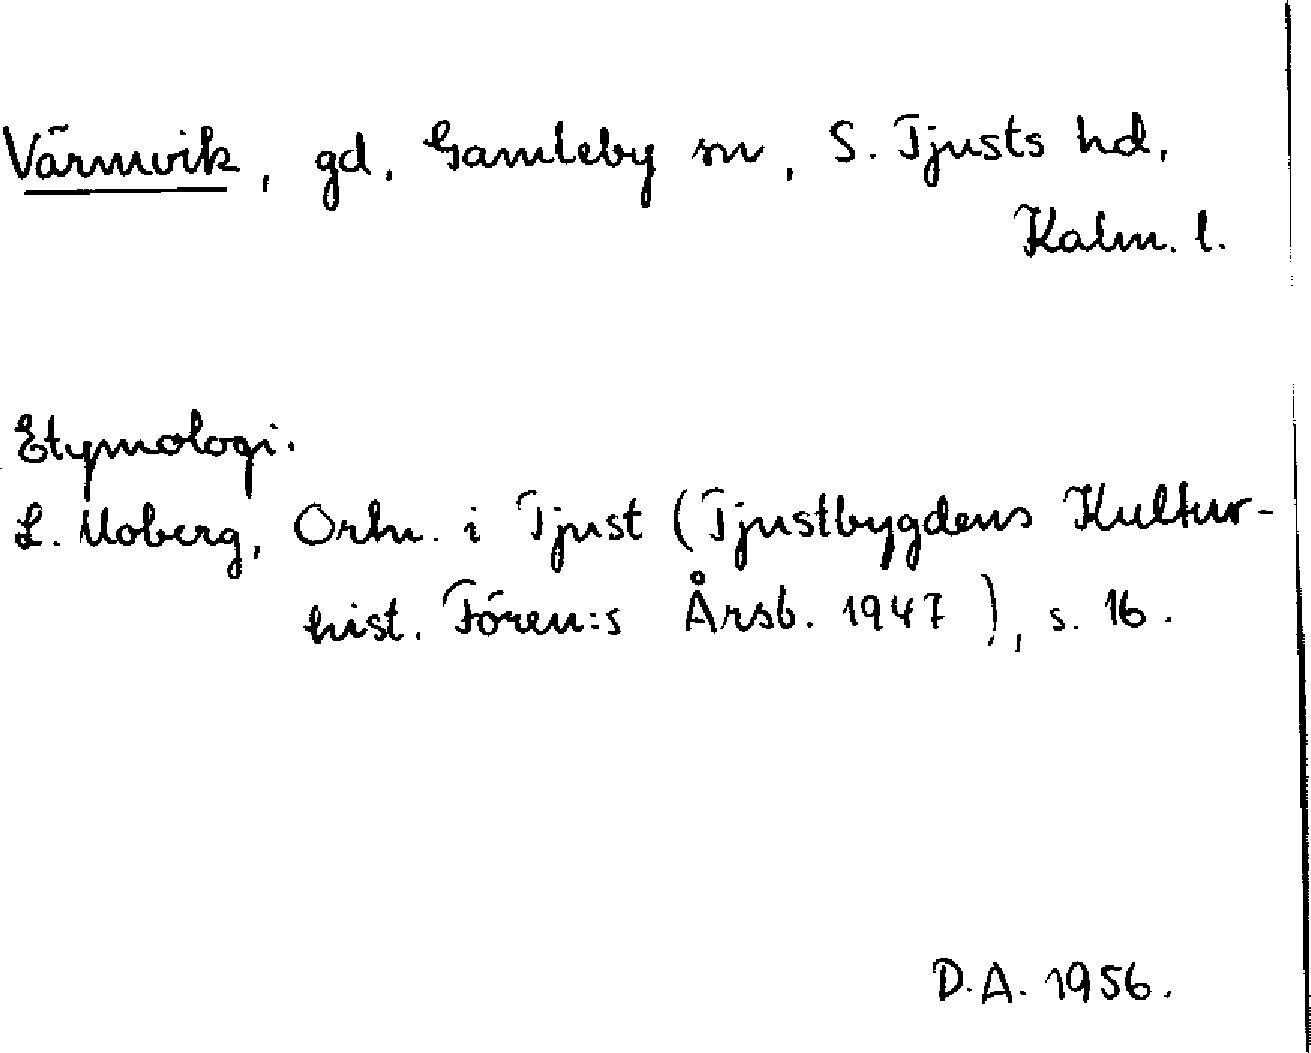 Värmvik, gd. Gamleby sn, S. Tjusts hd.
Kalm. l.
Etymologi.
L. Moberg, Ortn. i Tjust (Tjustbygdens Kultur-
hist. Fören:s Årsb. 1947), s. 16.
D.A. 1956.